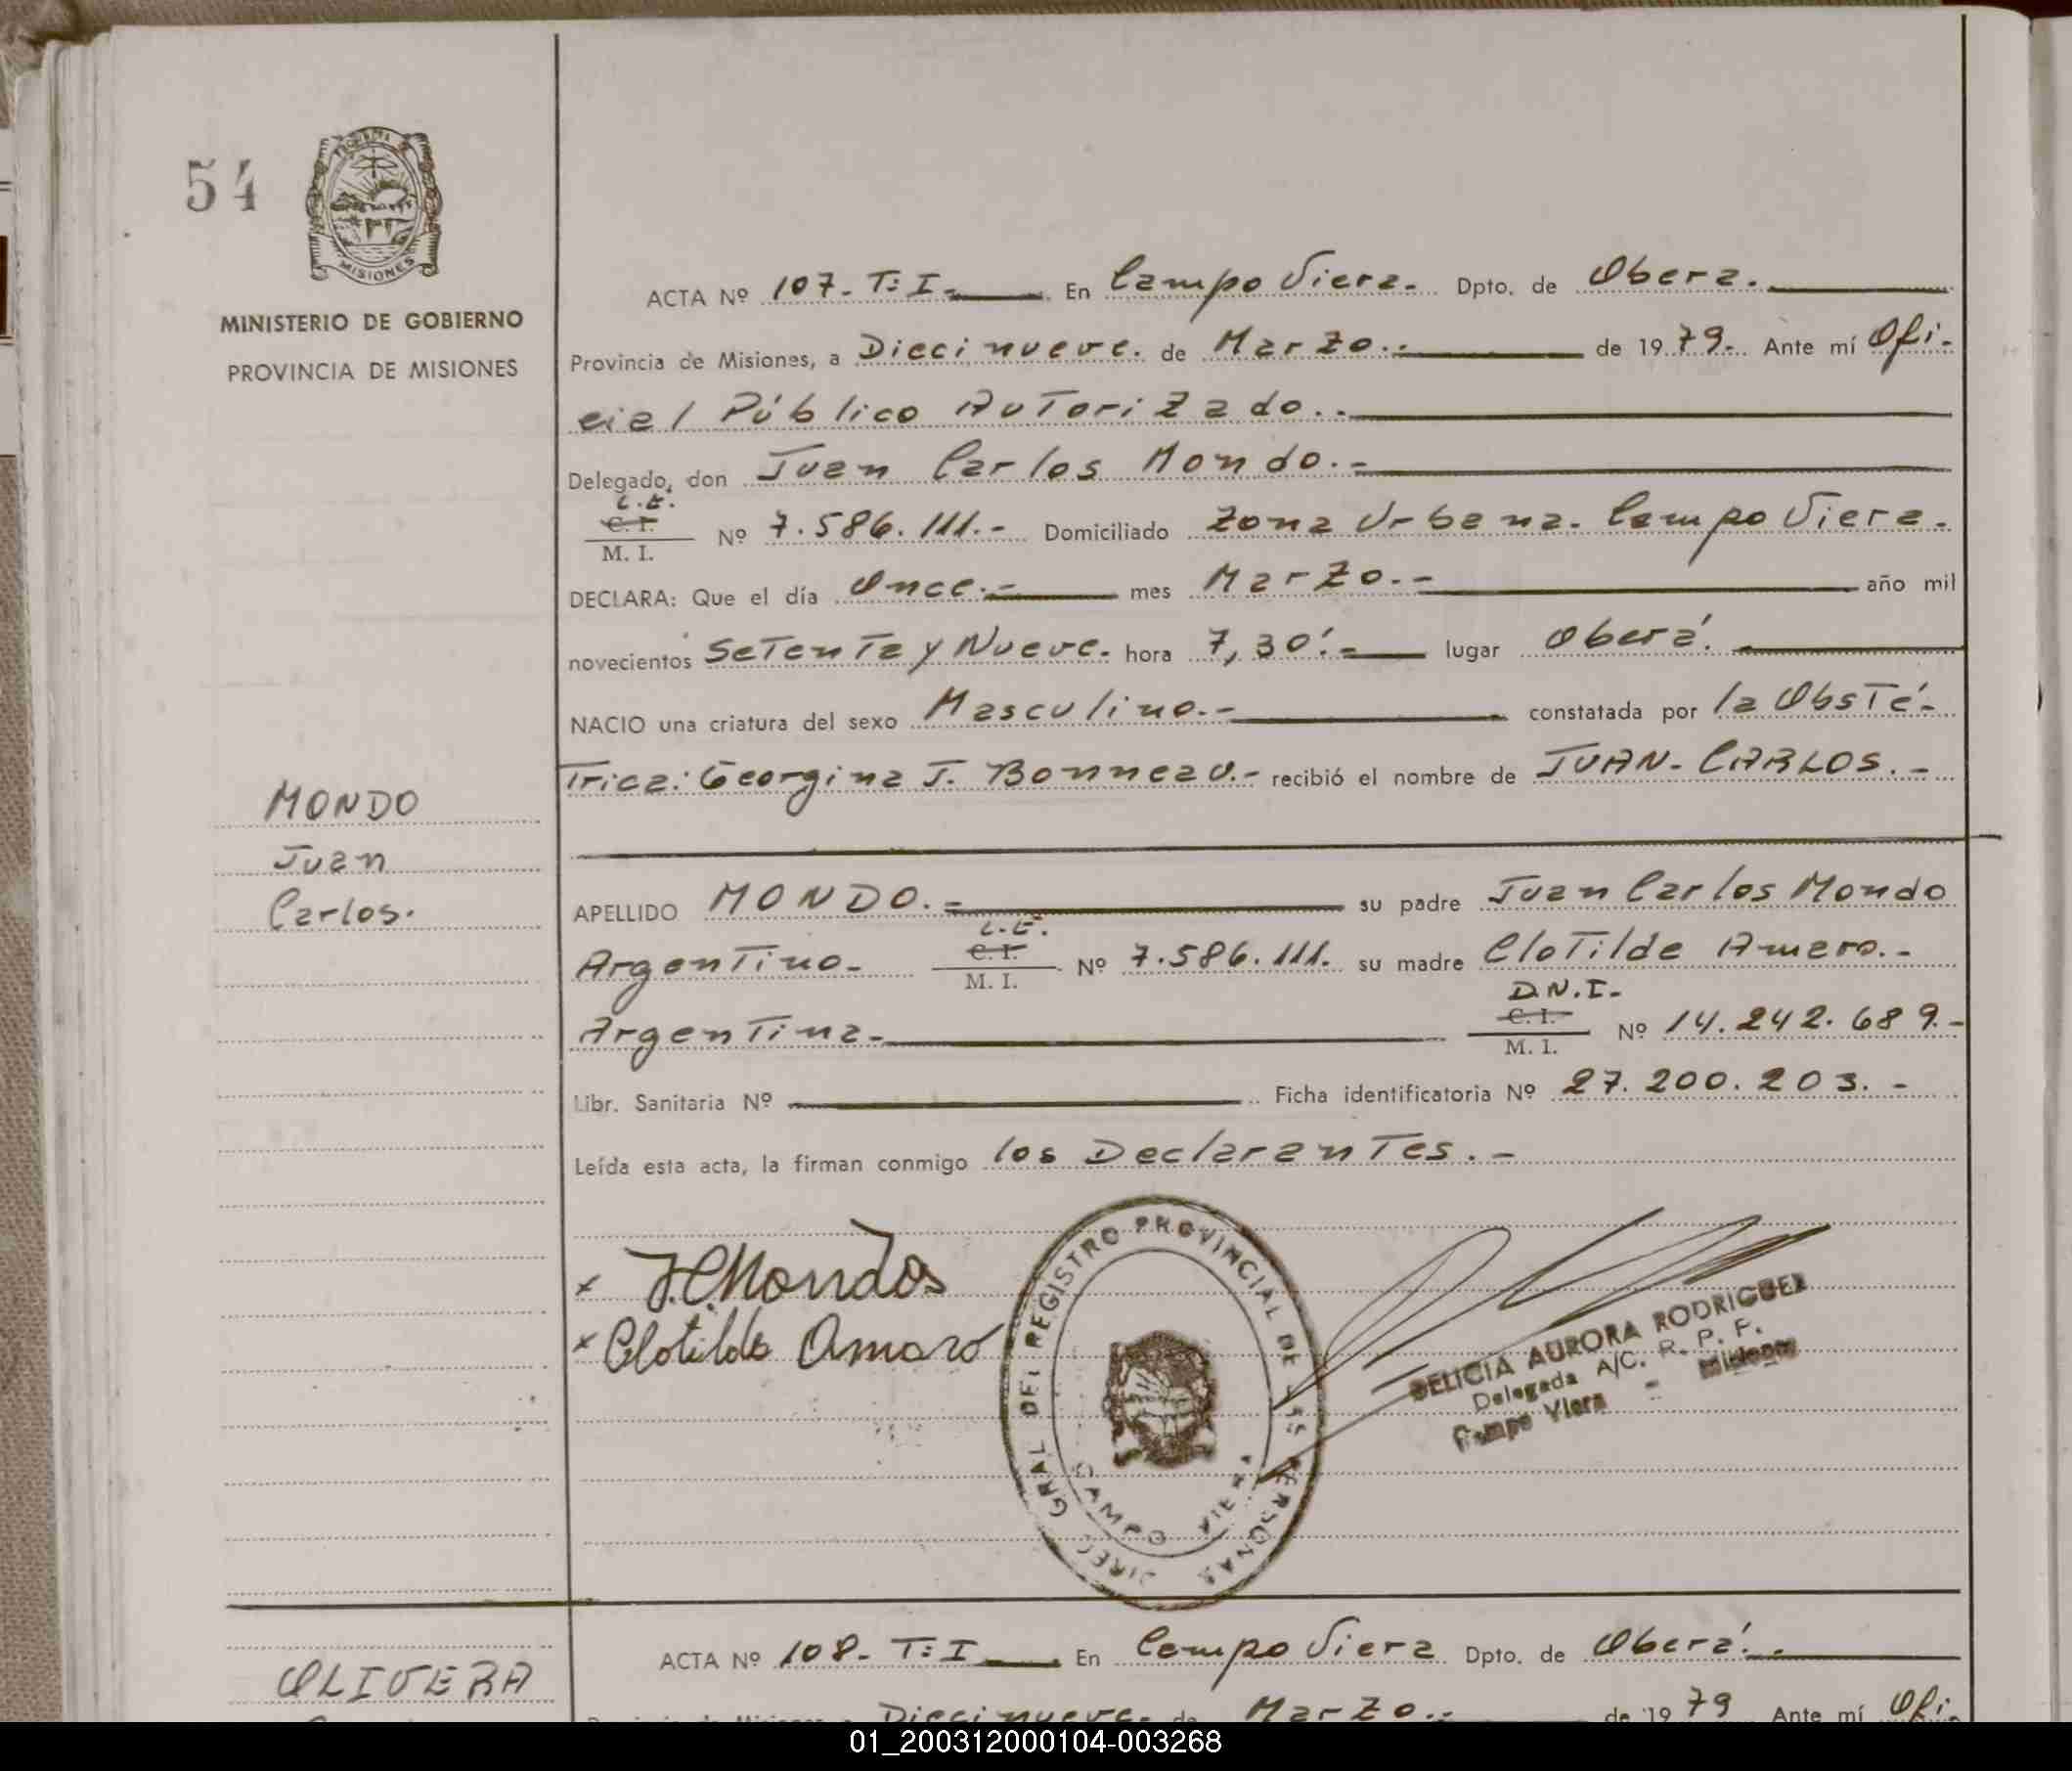 54
MISIONES
MINISTERIO DE GOBIERNO
PROVINCIA DE MISIONES
ACTA Nº 107- T: I.- En Campo Viera. Dpto. de Oberá.
Provincia de Misiones, a Diecinueve. de Marzo.- de 1979.- Ante mí Ofi-
cial Público Autorizado.-
Delegado, don Juan Carlos Mondo.-
L.E.
C. I.
M. I.
Nº 7.586.111.- Domiciliado Zona Urbana. Campo Viera.
DECLARA: Que el día Once.- mes Marzo.- año mil
novecientos Setenta y Nueve. hora 7,30'.- lugar Oberá.
NACIO una criatura del sexo Masculino.- constatada por la Obsté-
trica: Georgina J. Bonneau.- recibió el nombre de JUAN-CARLOS.-
MONDO
Juan
Carlos.
APELLIDO MONDO.- su padre Juan Carlos Mondo
Argentino-
L.E.
C. I.
M. I.
Nº 7.586.111. su madre Clotilde Amaro.-
Argentina-
D.N.I-
C. I.
M. I.
Nº 14.242.689.-
Libr. Sanitaria Nº Ficha identificatoria Nº 27.200.203.-
Leída esta acta, la firman conmigo los Declarantes.-
x J.C Mondo
x Clotilde Amaro
DIREC GRAL DEL REGISTRO PROVINCIAL DE LAS PERSONAS
CAMPO VIERA
DELICIA AURORA RODRIGUEZ
Delegada A/C. R. P. P.
Campo Viera - Misiones
ACTA Nº 108- T: I En Campo Viera Dpto. de Oberá.-
OLIVERA
Diecinueve. de Marzo.- de 1979 Ante mí Ofi.
01_200312000104-003268